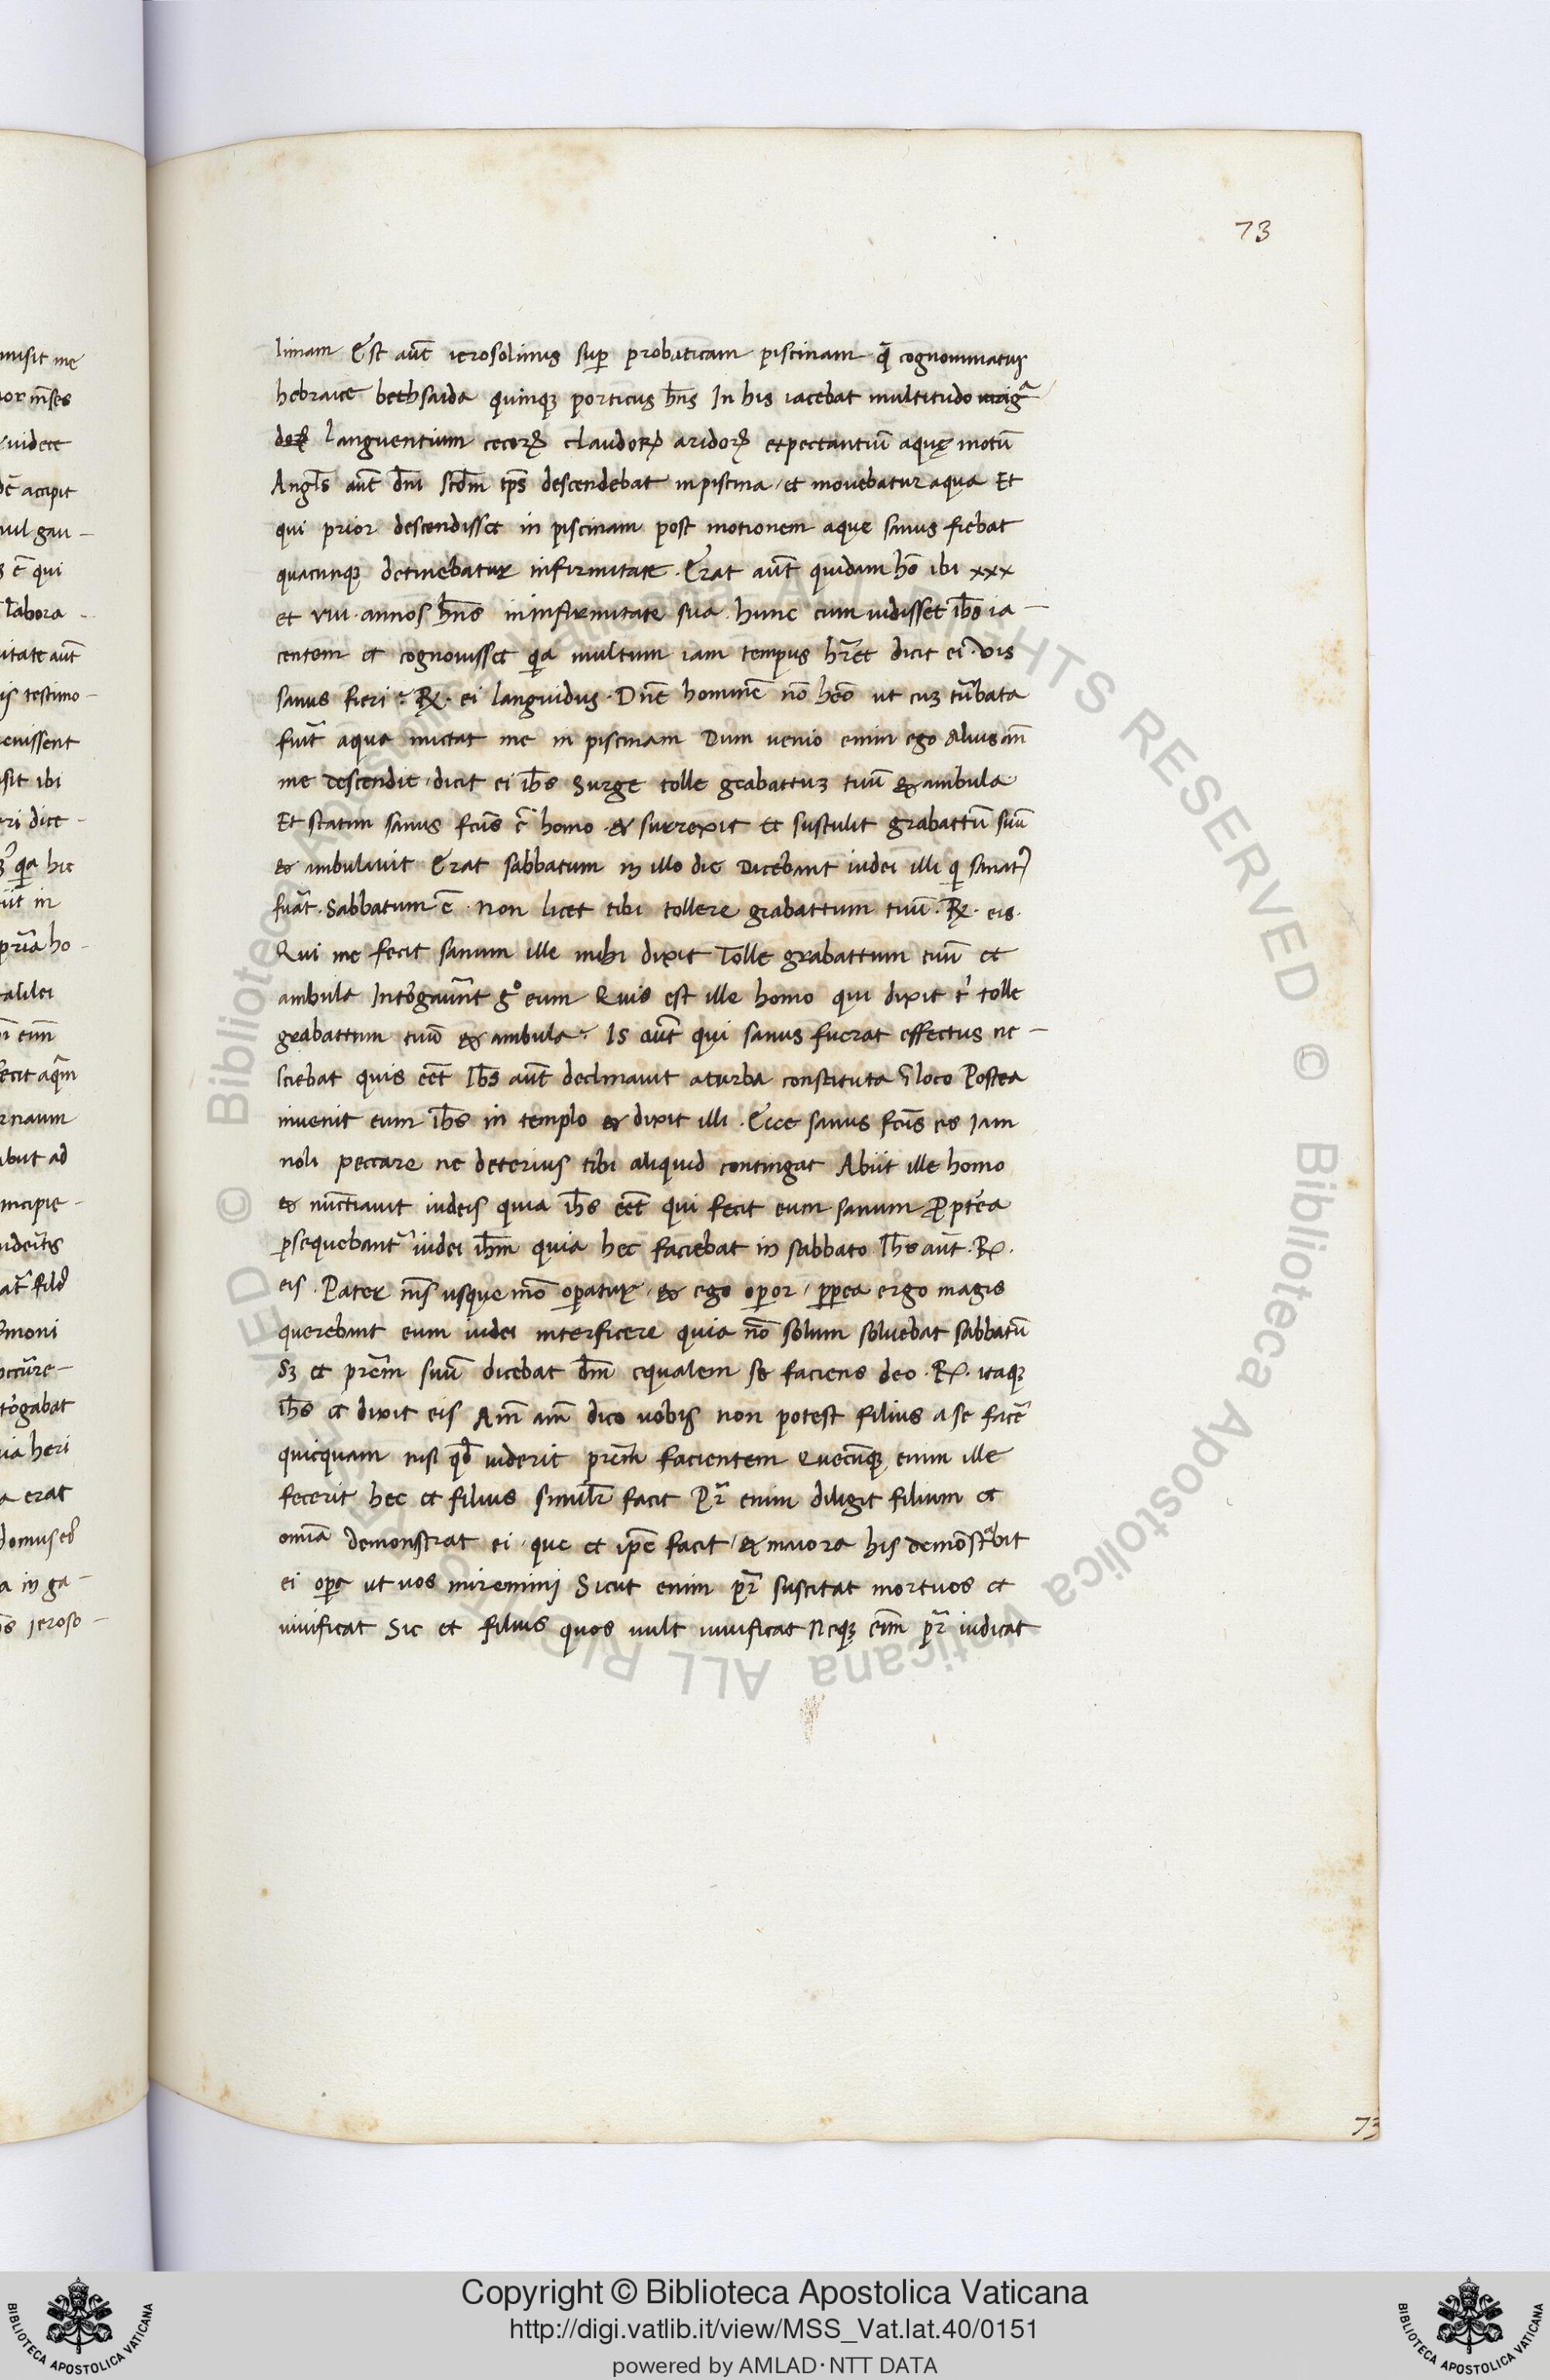 73
limam Est aut̄ ierosolimus sup̱ probaticam piscinam q̄ cognominatur
hebraice bethsaida quinqꝫ porticus hn̄s In his iacebat multitudo
languentium cecoꝝ claudoꝝ aridoꝝ expectantiū aquę motū
Angl̄s aut̄ dn̄i scdm̄ tp̄s descendebat in piscina / et mouebatur aqua Et
qui prior descendisset in piscinam post motionem aque sanus fiebat
quacunqꝫ detinebatur infirmitate. Erat aut̄ quidam hō ibi xxx
et viii. annos hn̄s in infirmitate sua. hunc cum uidisset ihs̄ ia-
centem et cognouisset qͥa multum iam tempus hr̄et dicit ei. Vis
sanus fieri? R̷. ei languidus. Dn̄e hominē nō heō ut cuꝫ tur̄bata
fuīt aqua mictat me in piscinam Dum uenio enim ego Alius an̄
me descendit. dicit ei ihs̄ Surge tolle grabattuꝫ tuū & ambula
Et statim sanus fcūs ē homo & surrexit et sustulit grabattū suū
& ambulauit Erat sabbatum in illo die Dicebant iudei illi qͥ sanatꝰ
fuāt. Sabbatum ē. Non licet tibi tollere grabattum tuū. R̷. eis.
Qui me fecit sanum ille mihi dixit Tolle grabattum tuū et
ambula Int̄ogauer̄nt gͦ eum Quis est ille homo qui dixit tͥ tolle
grabattum tuū & ambula? Is aut̄ qui sanus fuerat effectus ne-
sciebat quis eēt Ihs̄ aut̄ declinauit aturba constituta ī loco Postea
inuenit eum ihs̄ in templo & dixit illi. Ecce sanus fcūs es Iam
noli peccare ne deterius tibi aliquid contingat Abiit ille homo
& nunctiauit iudeis quia ihs̄ eēt qui fecit eum sanum Ꝓpt̄ea
ꝑsequebant᷑ iudei ihm̄ quia hec faciebat in sabbato Ihs̄ aut̄. R̷.
eis. Pater ms̄ usque mō oꝑatur. & ego oꝑor / ꝓpea ergo magis
querebant eum iudei interficere quia nō solum soluebat sabbatū
Sꝫ et prēm suū dicebat dm̄ equalem se faciens deo. R̷. itaqꝫ
ihs̄ et dixit eis Am̄ am̄ dico uobis non potest filius a se facē
quicquam nisi qd̄ uiderit prēm facientem Quecūqꝫ enim ille
fecerit hec et filius similr̄ facit Pr̄ enim diligit filium et
omīa demonstrat ei. que et ip̄e facit / & maiora his demōstᵃbit
ei oꝑa ut uos miremini Sicut enim pr̄ suscitat mortuos et
uiuificat Sic et filius quos uult uiuificat Neqꝫ eīm pr̄ iudicat
73
misit me
uidete
accipit
qui
labora
itate aut̄
testimo-
euissent
sit ibi
ri dice-
qͥa hic
in
alilei
eum
ecit aqͣm
rnaum
ad
incipie-
moni
gabat
ia heri
a erat
a in ga-
ieroso-
© Biblioteca Apostolica Vaticana ALL RIGHTS RESERVED © Biblioteca Apostolica Vaticana ALL RIGHTS RESERVED
Copyright © Biblioteca Apostolica Vaticana
http://digi.vatlib.it/view/MSS_Vat.lat.40/0151
powered by AMLAD·NTT DATA
BIBLIOTECA APOSTOLICA VATICANA
BIBLIOTECA APOSTOLICA VATICANA